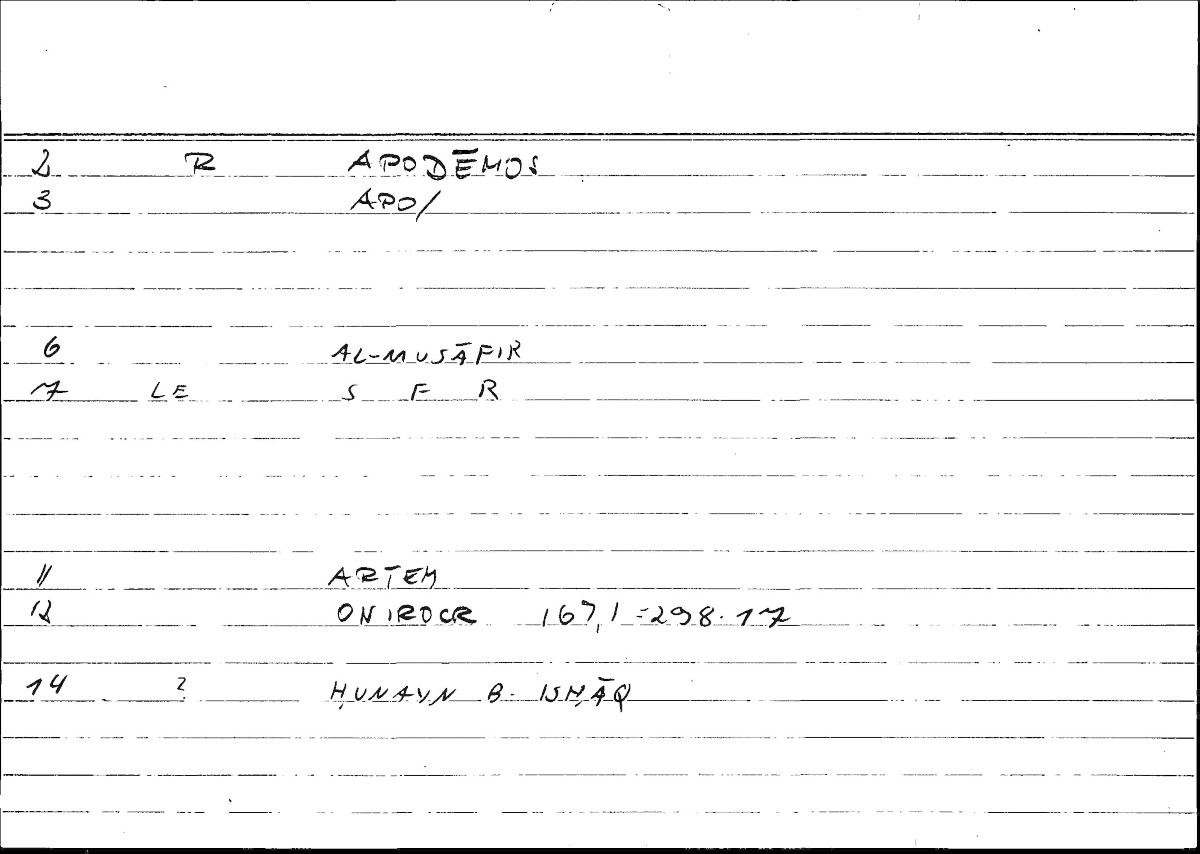 2 R APODĒMOS
3 APO/
6 AL-MUSĀFIR
7 LE S F R
11 ARTEM
12 ONIROCR 167,1=298.17
14 ? ḤUNAYN B. ISḤĀQ